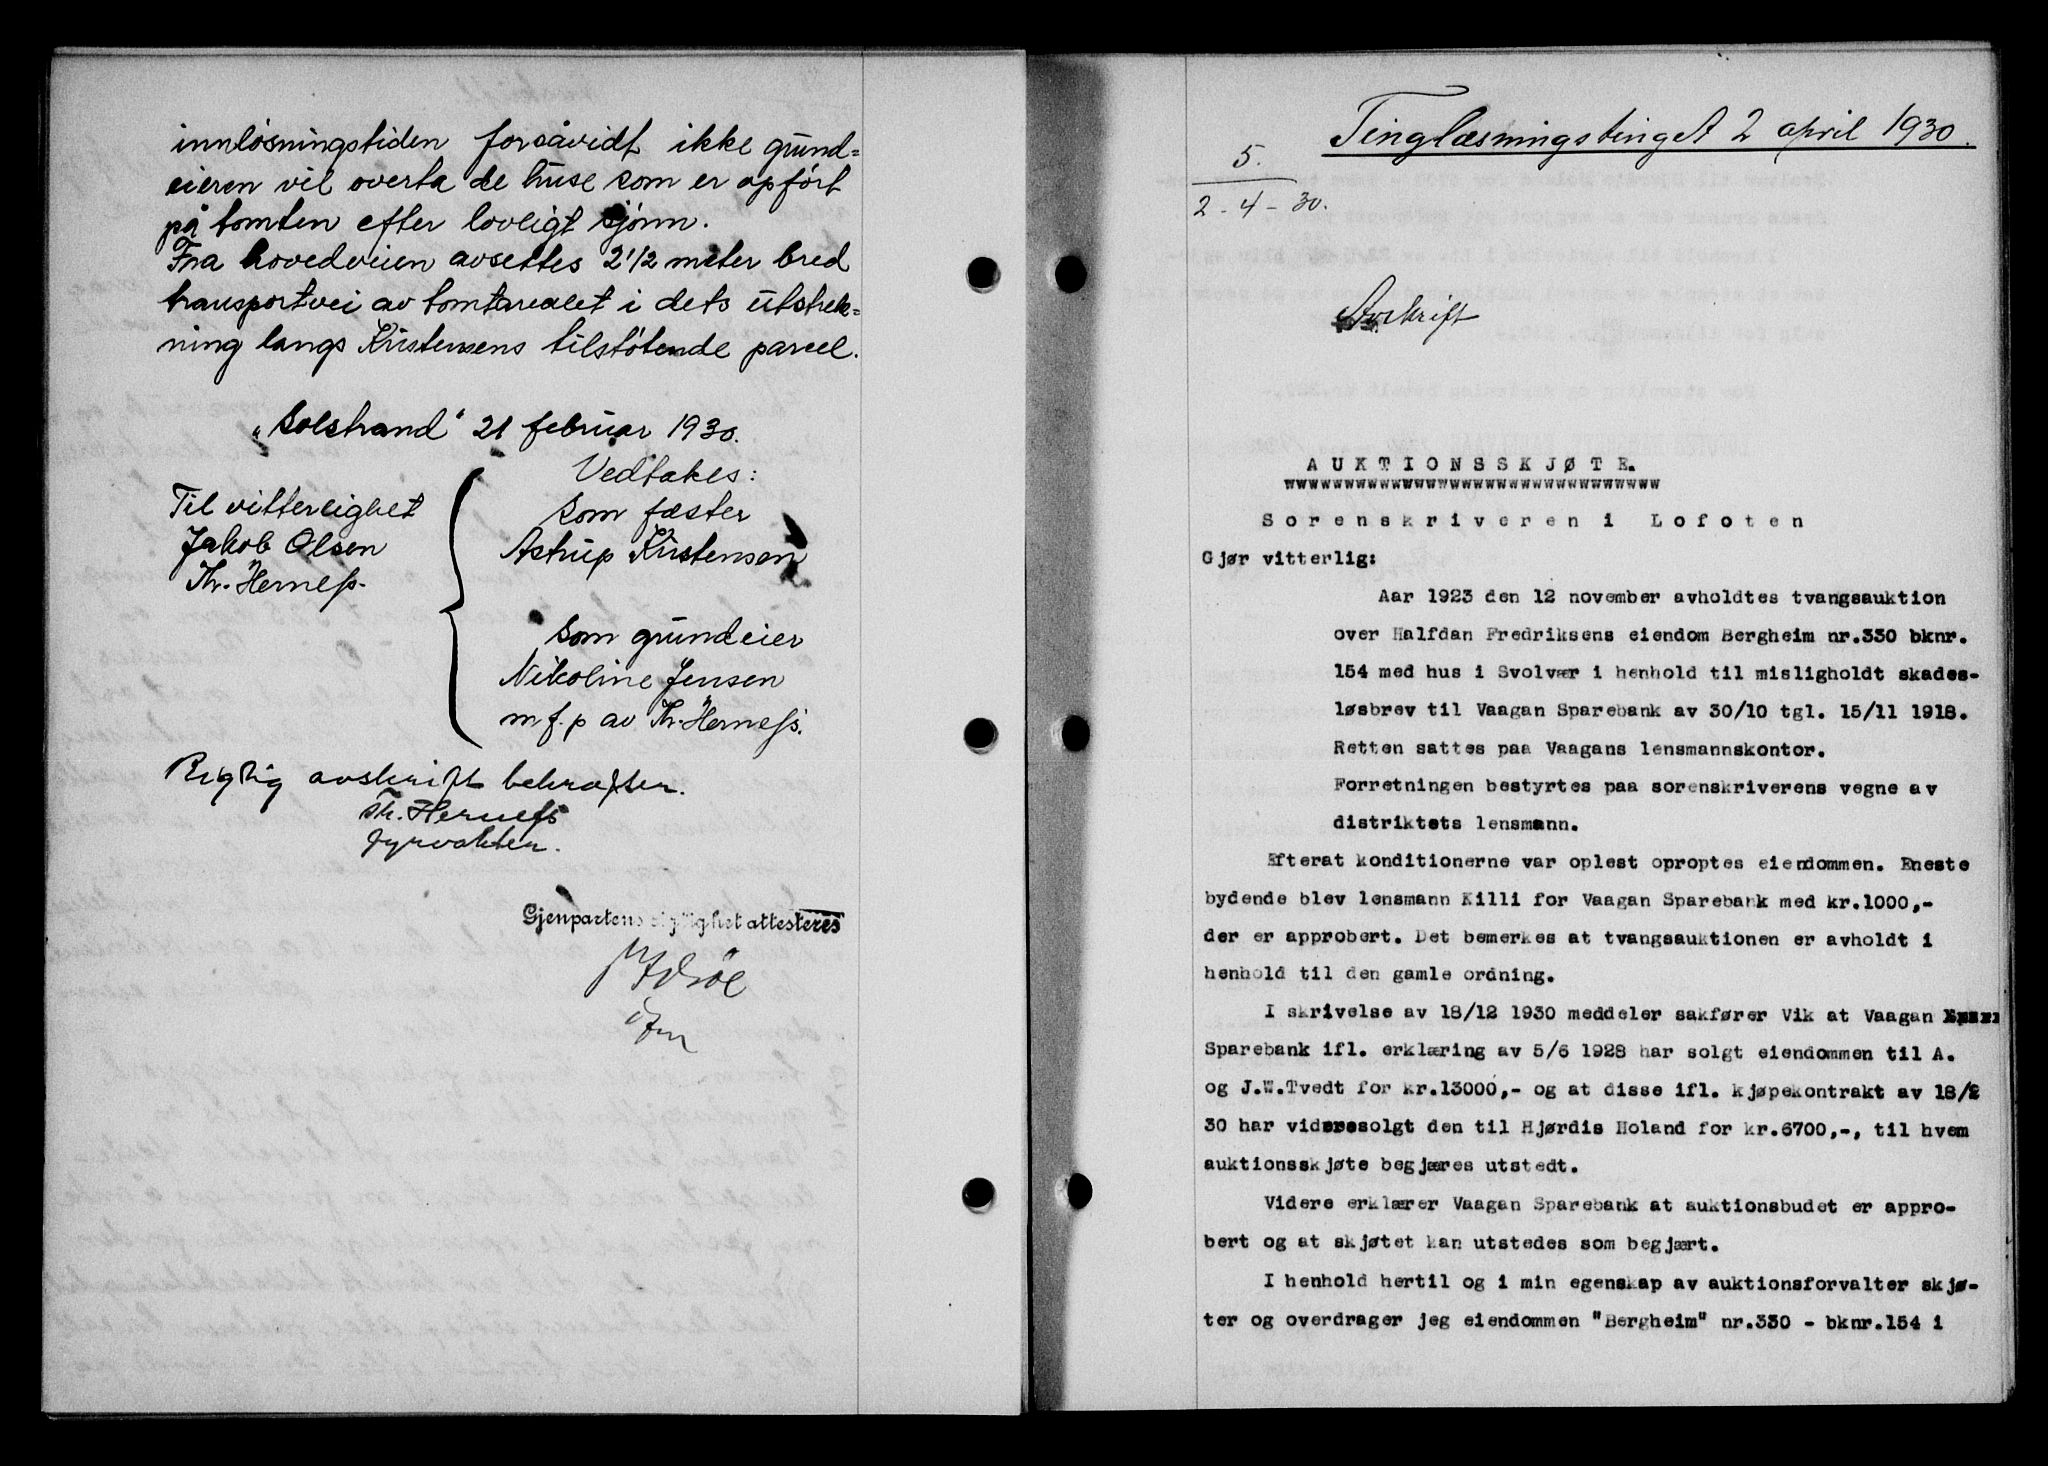 innløsningstiden forsåvidt ikke grund=
eieren vil overta de huse som er opført
på tomten efter lovligt skjønn.
Fra hovedveien avsettes 2 1/2 meter bred
transportvei av tomtarealet i dets utstrek-
ning langs Kristensens tilstøtende parcel.
„Solstrand" 21 februar 1930.
Vedtakes:
Til vitterlighet
Jakob Olsen
Th. Herness.
som fæster
Astrup Kristensen
som grundeier
Nikoline Jensen
m.f.p av Th. Herness.
Rigtig avskrift bekræfter.
Th. Herness
fyrvokter.
Gjenpartens rigtighet attesteres
Tinglæsningstinget 2 april 1930.
5.
2 - 4 - 30.
Avskrift
AUKTIONSSKJØTE.
"""""""""""""""""""""""""""""""
Sorenskriveren i Lofoten
Gjør vitterlig:
Aar 1923 den 12 november avholdtes tvangsauktion
over Halfdan Fredriksens eiendom Bergheim nr.330 bknr.
154 med hus i Svolvær i henhold til misligholdt skades-
løsbrev til Vaagan Sparebank av 30/10 tgl. 15/11 1918.
Retten sattes paa Vaagans lensmannskontor.
Forretningen bestyrtes paa sorenskriverens vegne av
distriktets lensmann.
Efterat konditionerne var oplest oproptes eiendommen. Eneste
bydende blev lensmann Killi for Vaagan Sparebank med kr.1000,-
der er approbert. Det bemerkes at tvangsauktionen er avholdt i
henhold til den gamle ordning.
I skrivelse av 18/12 1930 meddeler sakfører Vik at Vaagan
Sparebank ifl. erklæring av 5/6 1928 har solgt eiendommen til A.
og J.W.Tvedt for kr.13000,- og at disse ifl. kjøpekontrakt av 18/2
30 har videresolgt den til Hjørdis Holand for kr.6700,-, til hvem
auktionsskjøte begjæres utstedt.
Videre erklærer Vaagan Sparebank at auktionsbudet er appro-
bert og at skjøtet kan utstedes som begjært.
I henhold hertil og i min egenskap av auktionsforvalter skjø-
ter og overdrager jeg eiendommen "Bergheim" nr.330 - bknr.154 i